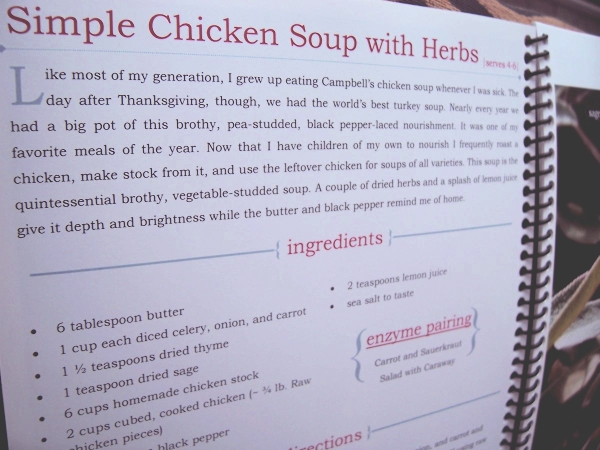 Simple Chicken Soup with Herbs {serves 4-6}
Like most of my generation, I grew up eating Campbell's chicken soup whenever I was sick. The
day after Thanksgiving, though, we had the world's best turkey soup. Nearly every year we
had a big pot of this brothy, pea-studded, black pepper-laced nourishment. It was one of my
favorite meals of the year. Now that I have children of my own to nourish I frequently roast a
chicken, make stock from it, and use the leftover chicken for soups of all varieties. This soup is the
quintessential brothy, vegetable-studded soup. A couple of dried herbs and a splash of lemon juice
give it depth and brightness while the butter and black pepper remind me of home.
{ ingredients }
• 6 tablespoon butter
• 1 cup each diced celery, onion, and carrot
• 1 ½ teaspoons dried thyme
• 1 teaspoon dried sage
• 6 cups homemade chicken stock
• 2 cups cubed, cooked chicken (~ ¾ lb. Raw
chicken pieces)
black pepper
• 2 teaspoons lemon juice
• sea salt to taste
{ enzyme pairing }
Carrot and Sauerkraut
Salad with Caraway
directions }
onion, and carrot and